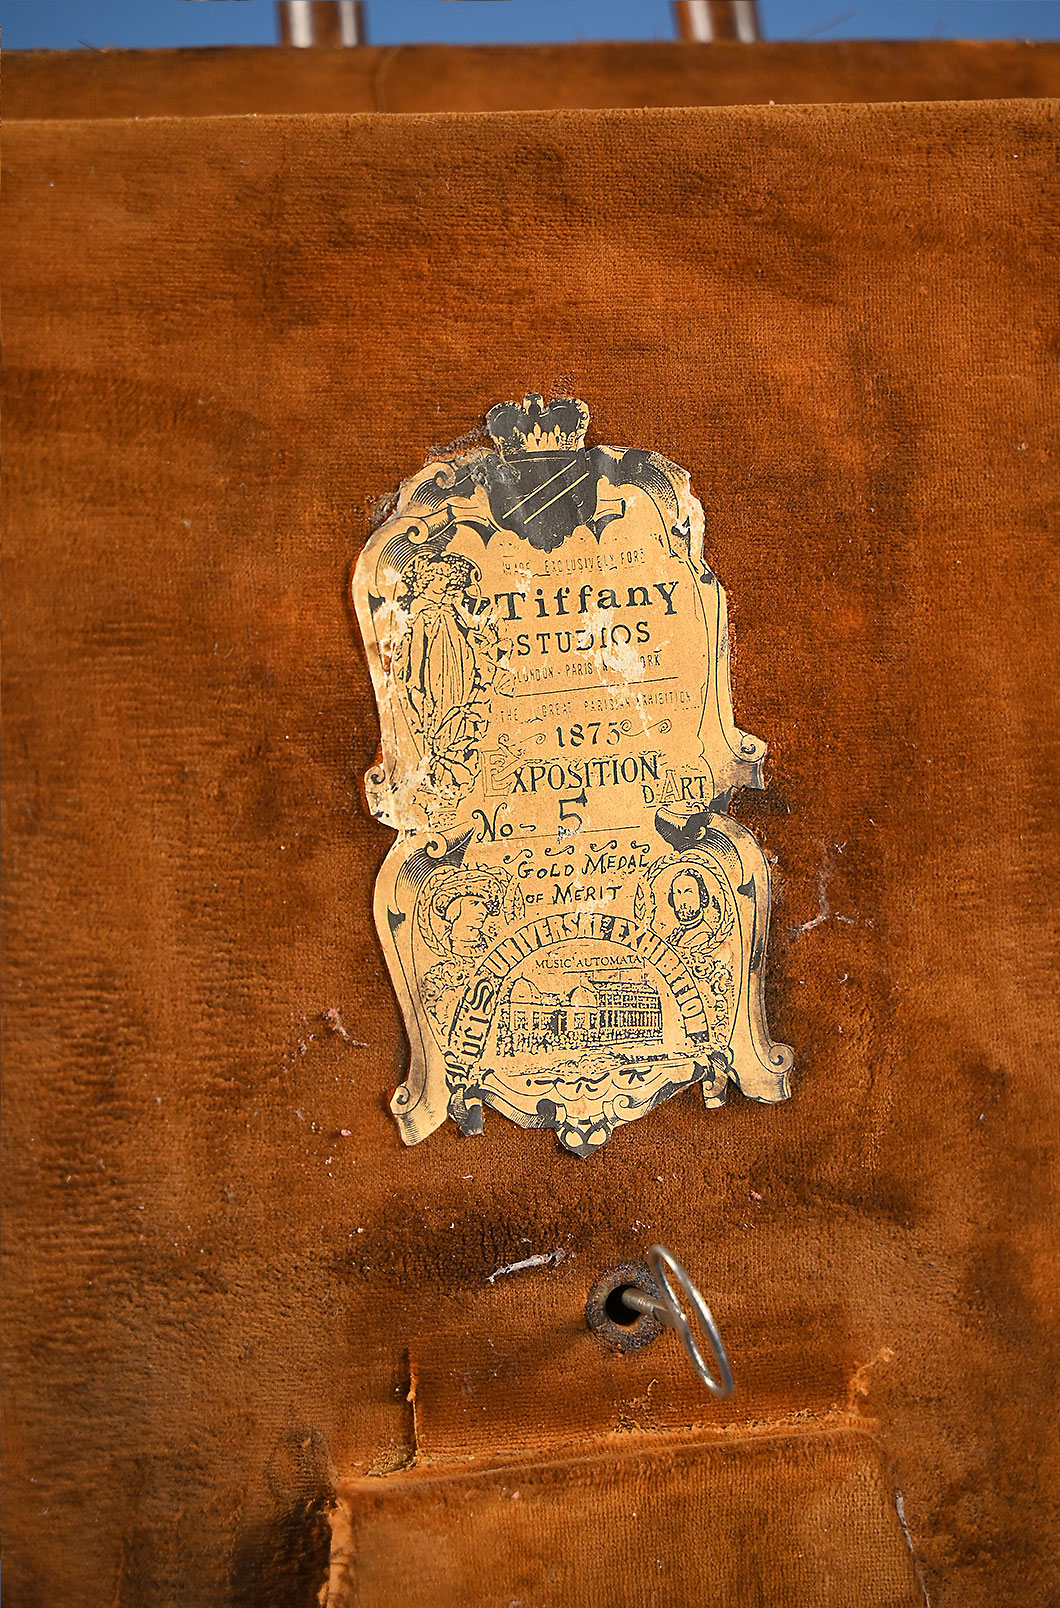 MADE EXCLUSIVELY FORE
Tiffany
STUDIOS
LONDON - PARIS
THE GREAT PARISIAN EXHIBITION
1875
EXPOSITION
D'ART
No- 5
GOLD MEDAL
OF MERIT
PariS UNIVERSAL EXHIBITION
MUSIC AUTOMATA